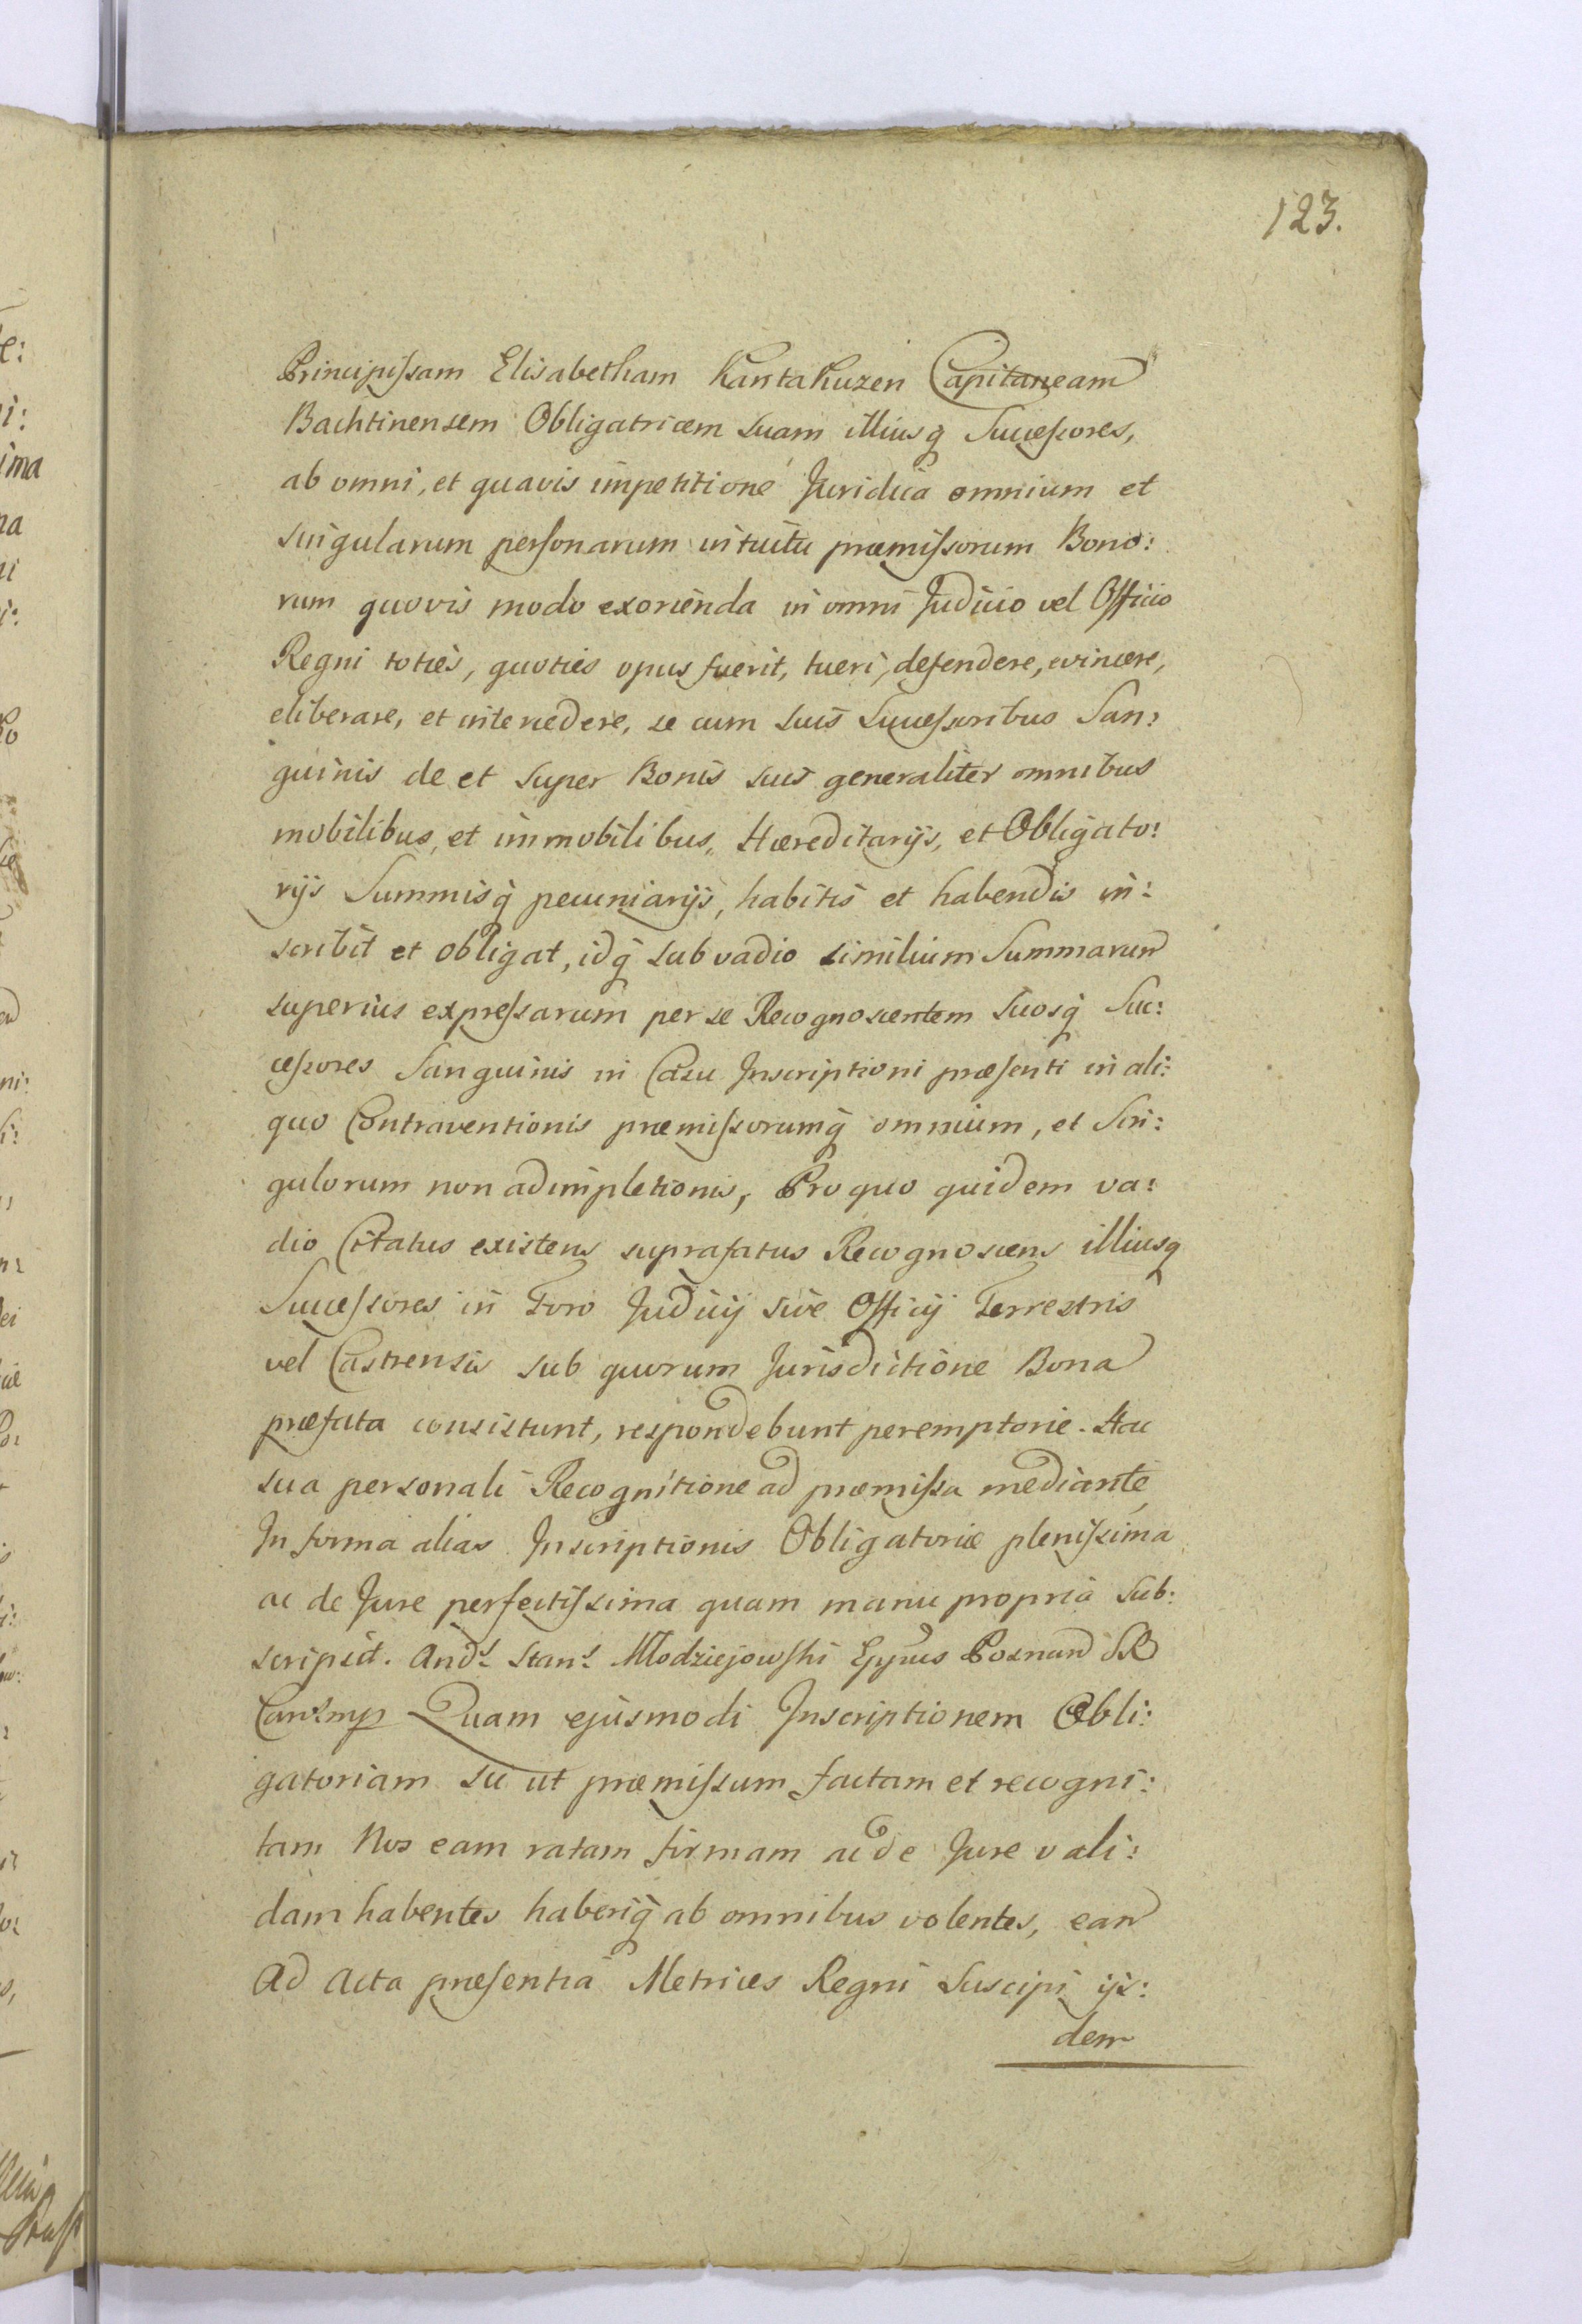 123.
Principissam Elisabetham Kantakuzen Capitaneam
Bachtinensem Obligatricem suam illiusq Successores,
ab omni, et quavis impetitione Juridica omnium et
singularum personarum intuitu præmissorum Bono:
rum quovis modo exorienda in omni Judicio vel Officio
Regni toties, quoties opus fuerit, tueri, defendere, evincere,
eliberare, et intercedere, se cum suis Successoribus San:
guinis de et super Bonis suis generaliter omnibus
mobilibus, et immobilibus, Hæreditarijs, et Obligato:
rijs Summisq pecuniarijs, habitis et habendis in:
scribit et obligat, idq sub vadio similium Summarum
superius expressarum per se Recognoscentem Suosq Suc:
cessores Sanguinis in Casu Inscriptioni præsenti in ali:
quo Contraventionis præmissorumq omnium, et Sin:
gulorum non adimpletionis, Pro quo quidem va:
dio Citatus existens suprafatus Recognoscens illiusq
Successores in Foro Judicij sive Officij Terrestris
vel Castrensis sub quorum Jurisdictione Bona
præfata consistunt, respondebunt peremptorie. Hac
sua personali Recognitione ad præmissa mediante
In forma alias Inscriptionis Obligatoriæ plenissima
ac de Jure perfectissima quam manu propria sub:
scripsit. Andˢ: Stanˢ: Młodziejowski Eppus Posnan SR
Canc mp Quam ejusmodi Inscriptionem Obli:
gatoriam sic ut præmissum factam et recogni:
tam Nos eam ratam firmam ac de Jure vali:
dam habentes haberiq ab omnibus volentes, eam
Ad Acta præsentia Metrices Regni Suscipi ijs:
dem